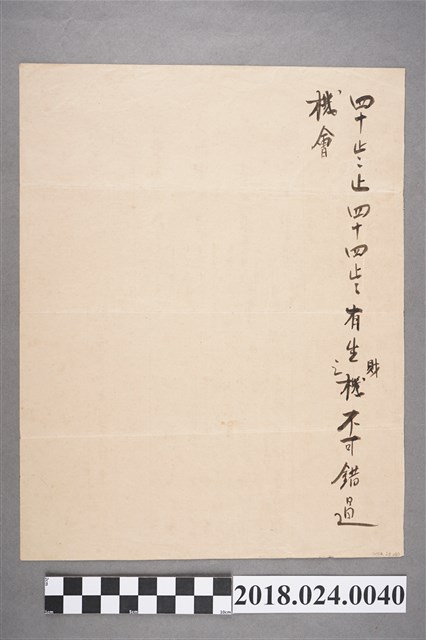 四十歲止四十四歲有生財之機不可錯過
機會
2018.024.0040